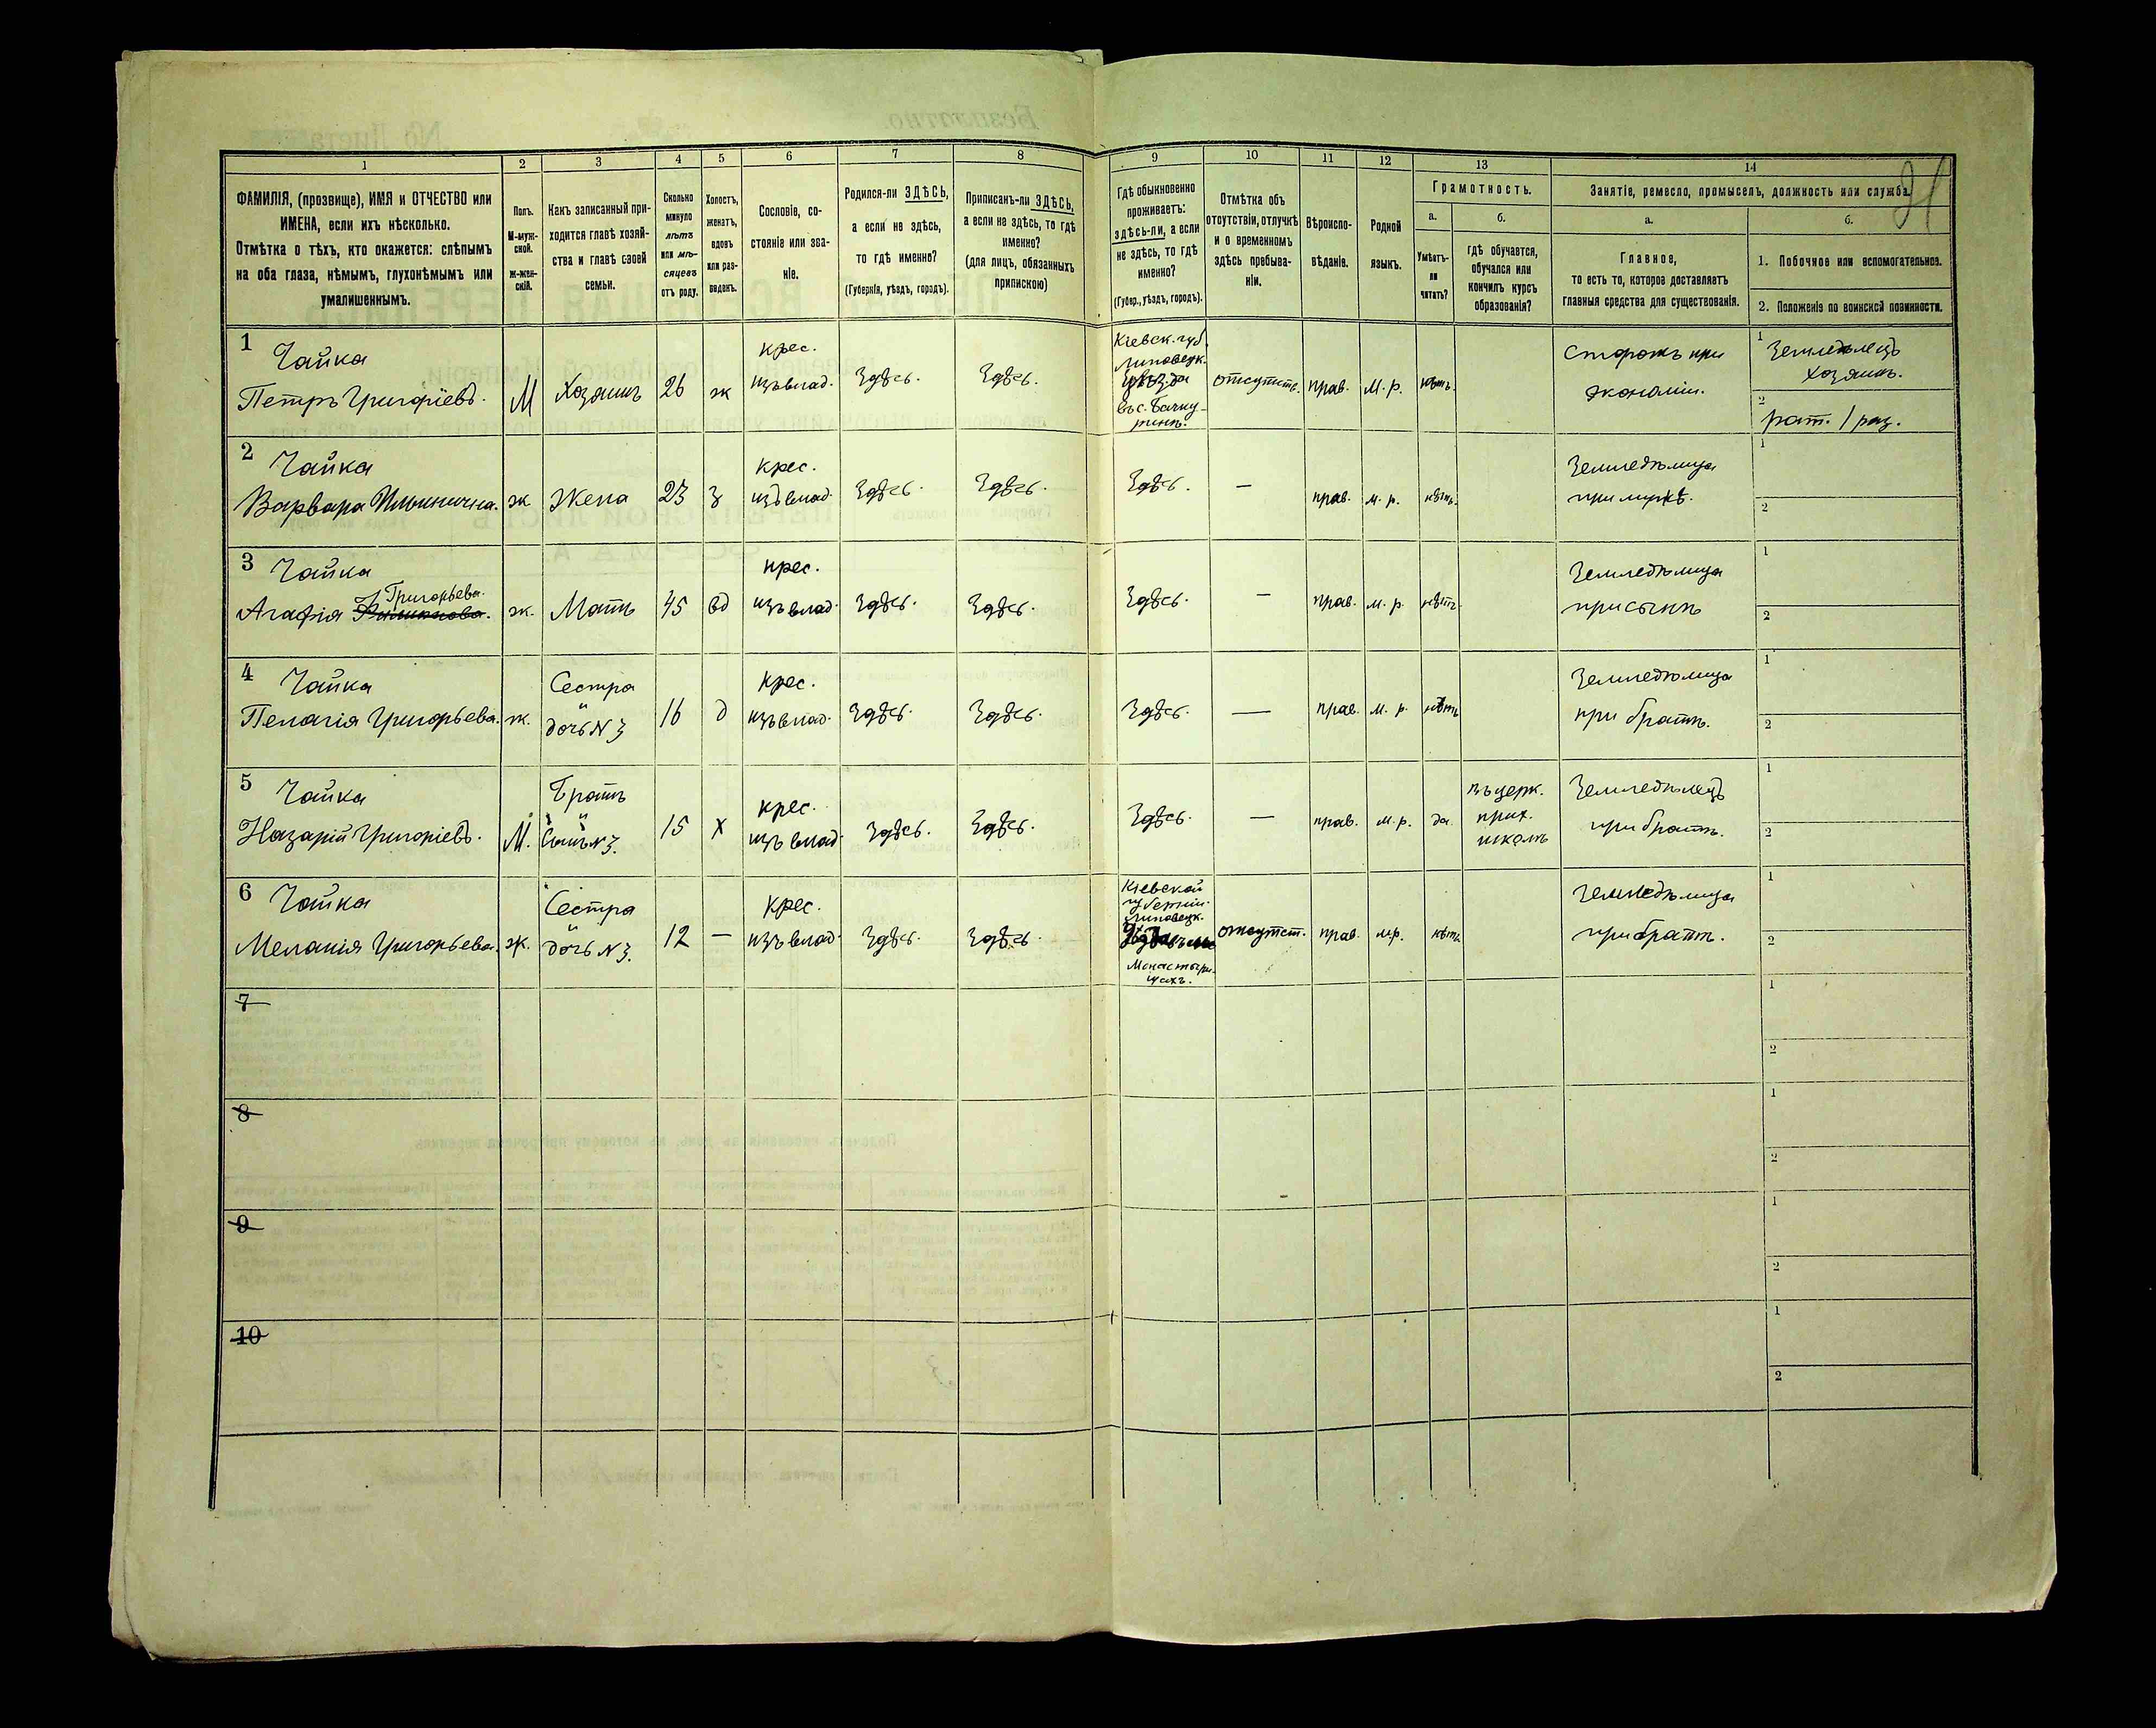 21
1 2 3 4 5 6 7 8 9 10 11 12 13 14
ФАМИЛІЯ, (прозвище), ИМЯ и ОТЧЕСТВО или
ИМЕНА, если ихъ нѣсколько.
Отмѣтка о тѣхъ, кто окажется: слѣпымъ
на оба глаза, нѣмымъ, глухонѣмымъ или
умалишеннымъ.
Полъ.
М-муж-
ской.
ж-жен-
скій.
Какъ записанный при-
ходится главѣ хозяй-
ства и главѣ своей
семьи.
Сколько
минуло
лѣтъ
или мѣ-
сяцевъ
отъ роду.
Холостъ,
женатъ,
вдовъ
или раз-
веденъ.
Сословіе, со-
стояніе или зва-
ніе.
Родился-ли ЗДѢСЬ,
а если не здѣсь,
то гдѣ именно?
(Губернія, уѣздъ, городъ).
Приписанъ-ли ЗДѢСЬ,
а если не здѣсь, то гдѣ
именно?
(для лицъ, обязанныхъ
припискою)
Гдѣ обыкновенно
проживаетъ:
здѣсь-ли, а если
не здѣсь, то гдѣ
именно?
(Губер., уѣздъ, городъ).
Отмѣтка объ
отсутствіи, отлучкѣ
и о временномъ
здѣсь пребыва-
ніи.
Вѣроиспо-
вѣданіе.
Родной
языкъ.
Грамотность.
а. б.
Умѣетъ-
ли
читать?
гдѣ обучается,
обучался или
кончилъ курсъ
образованія?
Занятіе, ремесло, промыселъ, должность или служба.
а. б.
Главное,
то есть то, которое доставляетъ
главныя средства для существованія.
1. Побочное или вспомогательное.
2. Положеніе по воинской повинности.
1 Чайка
Петръ Григоріевъ.
М
Хозяинъ
26
ж
крес.
изъ влад.
Здѣсь.
Здѣсь.
Кіевск. губ.
Липовецк.
уѣзда
въ с.
отсутств.
прав.
м. р.
нѣтъ.
Сторожъ при
экономіи.
1 Земледѣлецъ
хозяинъ.
2 рат. 1 раз.
2 Чайка
Варвара Ильинична.
ж
Жена
23
з
крес.
изъ влад.
Здѣсь.
Здѣсь.
Здѣсь.
—
прав.
м. р.
нѣтъ.
Земледѣлица
при мужѣ.
1
2
3 Чайка
Григорьева.
Агафія
ж.
Мать
45
вд
крес.
изъ влад.
Здѣсь.
Здѣсь.
Здѣсь.
—
прав.
м. р.
нѣтъ.
Земледѣлица
при сынѣ
1
2
4 Чайка
Пелагія Григорьева.
ж.
Сестра
и
дочь N 3
16
д
крес.
изъ влад.
Здѣсь.
Здѣсь.
Здѣсь.
—
прав.
м. р.
нѣтъ
Земледѣлица
при братѣ.
1
2
5 Чайка
Назарій Григоріевъ.
М.
Братъ
и
Сынъ N 3.
15
х
крес.
изъ влад.
Здѣсь.
Здѣсь.
Здѣсь.
—
прав.
м. р.
да.
въ церк.
прих.
школѣ
Земледѣлецъ
при братѣ.
1
2
6 Чайка
Меланія Григорьева.
ж.
Сестра
и
дочь N 3.
12
—
крес.
изъ влад.
Здѣсь.
Здѣсь.
Кіевской
губерніи.
Липовецк.
Монастыри-
щахъ.
отсутст.
прав.
м.р.
нѣтъ
Земледѣлица
при братѣ.
1
2
7
1
2
8
1
2
9
1
2
10
1
2